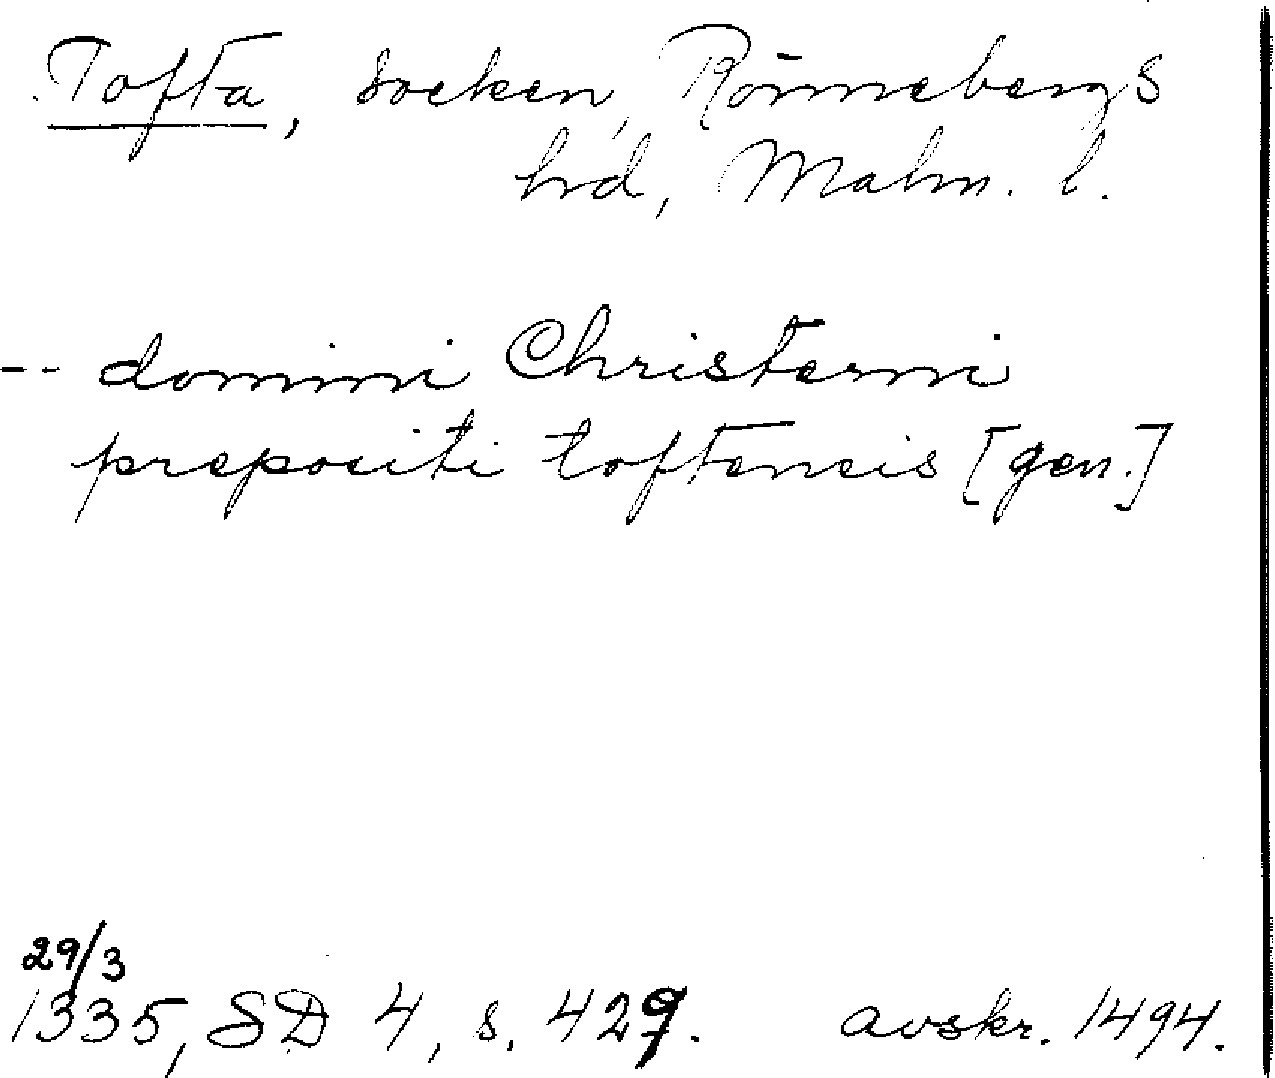 Tofta, socken, Rönnebergs
hd, Malm. l.
-- domini Christerni
prepositi toftensis [gen.]
29/3
1335, SD 4, s. 429. avskr. 1494.